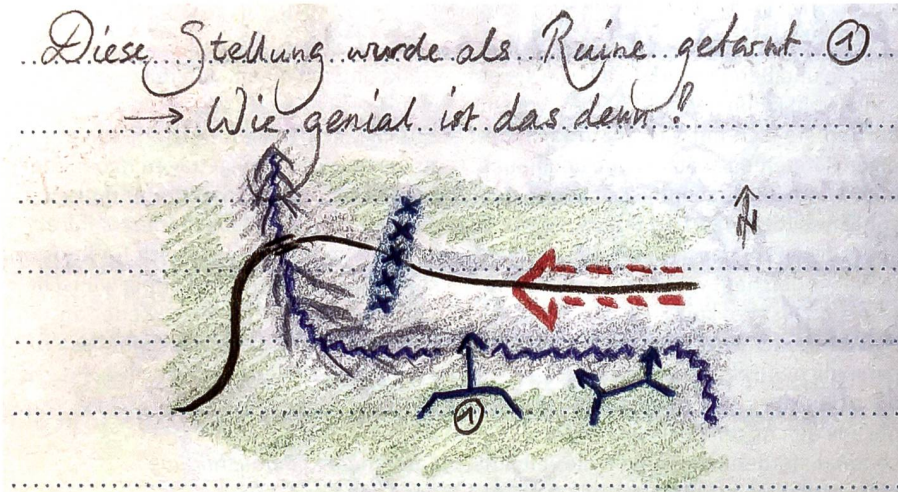 Diese Stellung wurde als Ruine getarnt ①
→ Wie genial ist das denn!
N
①